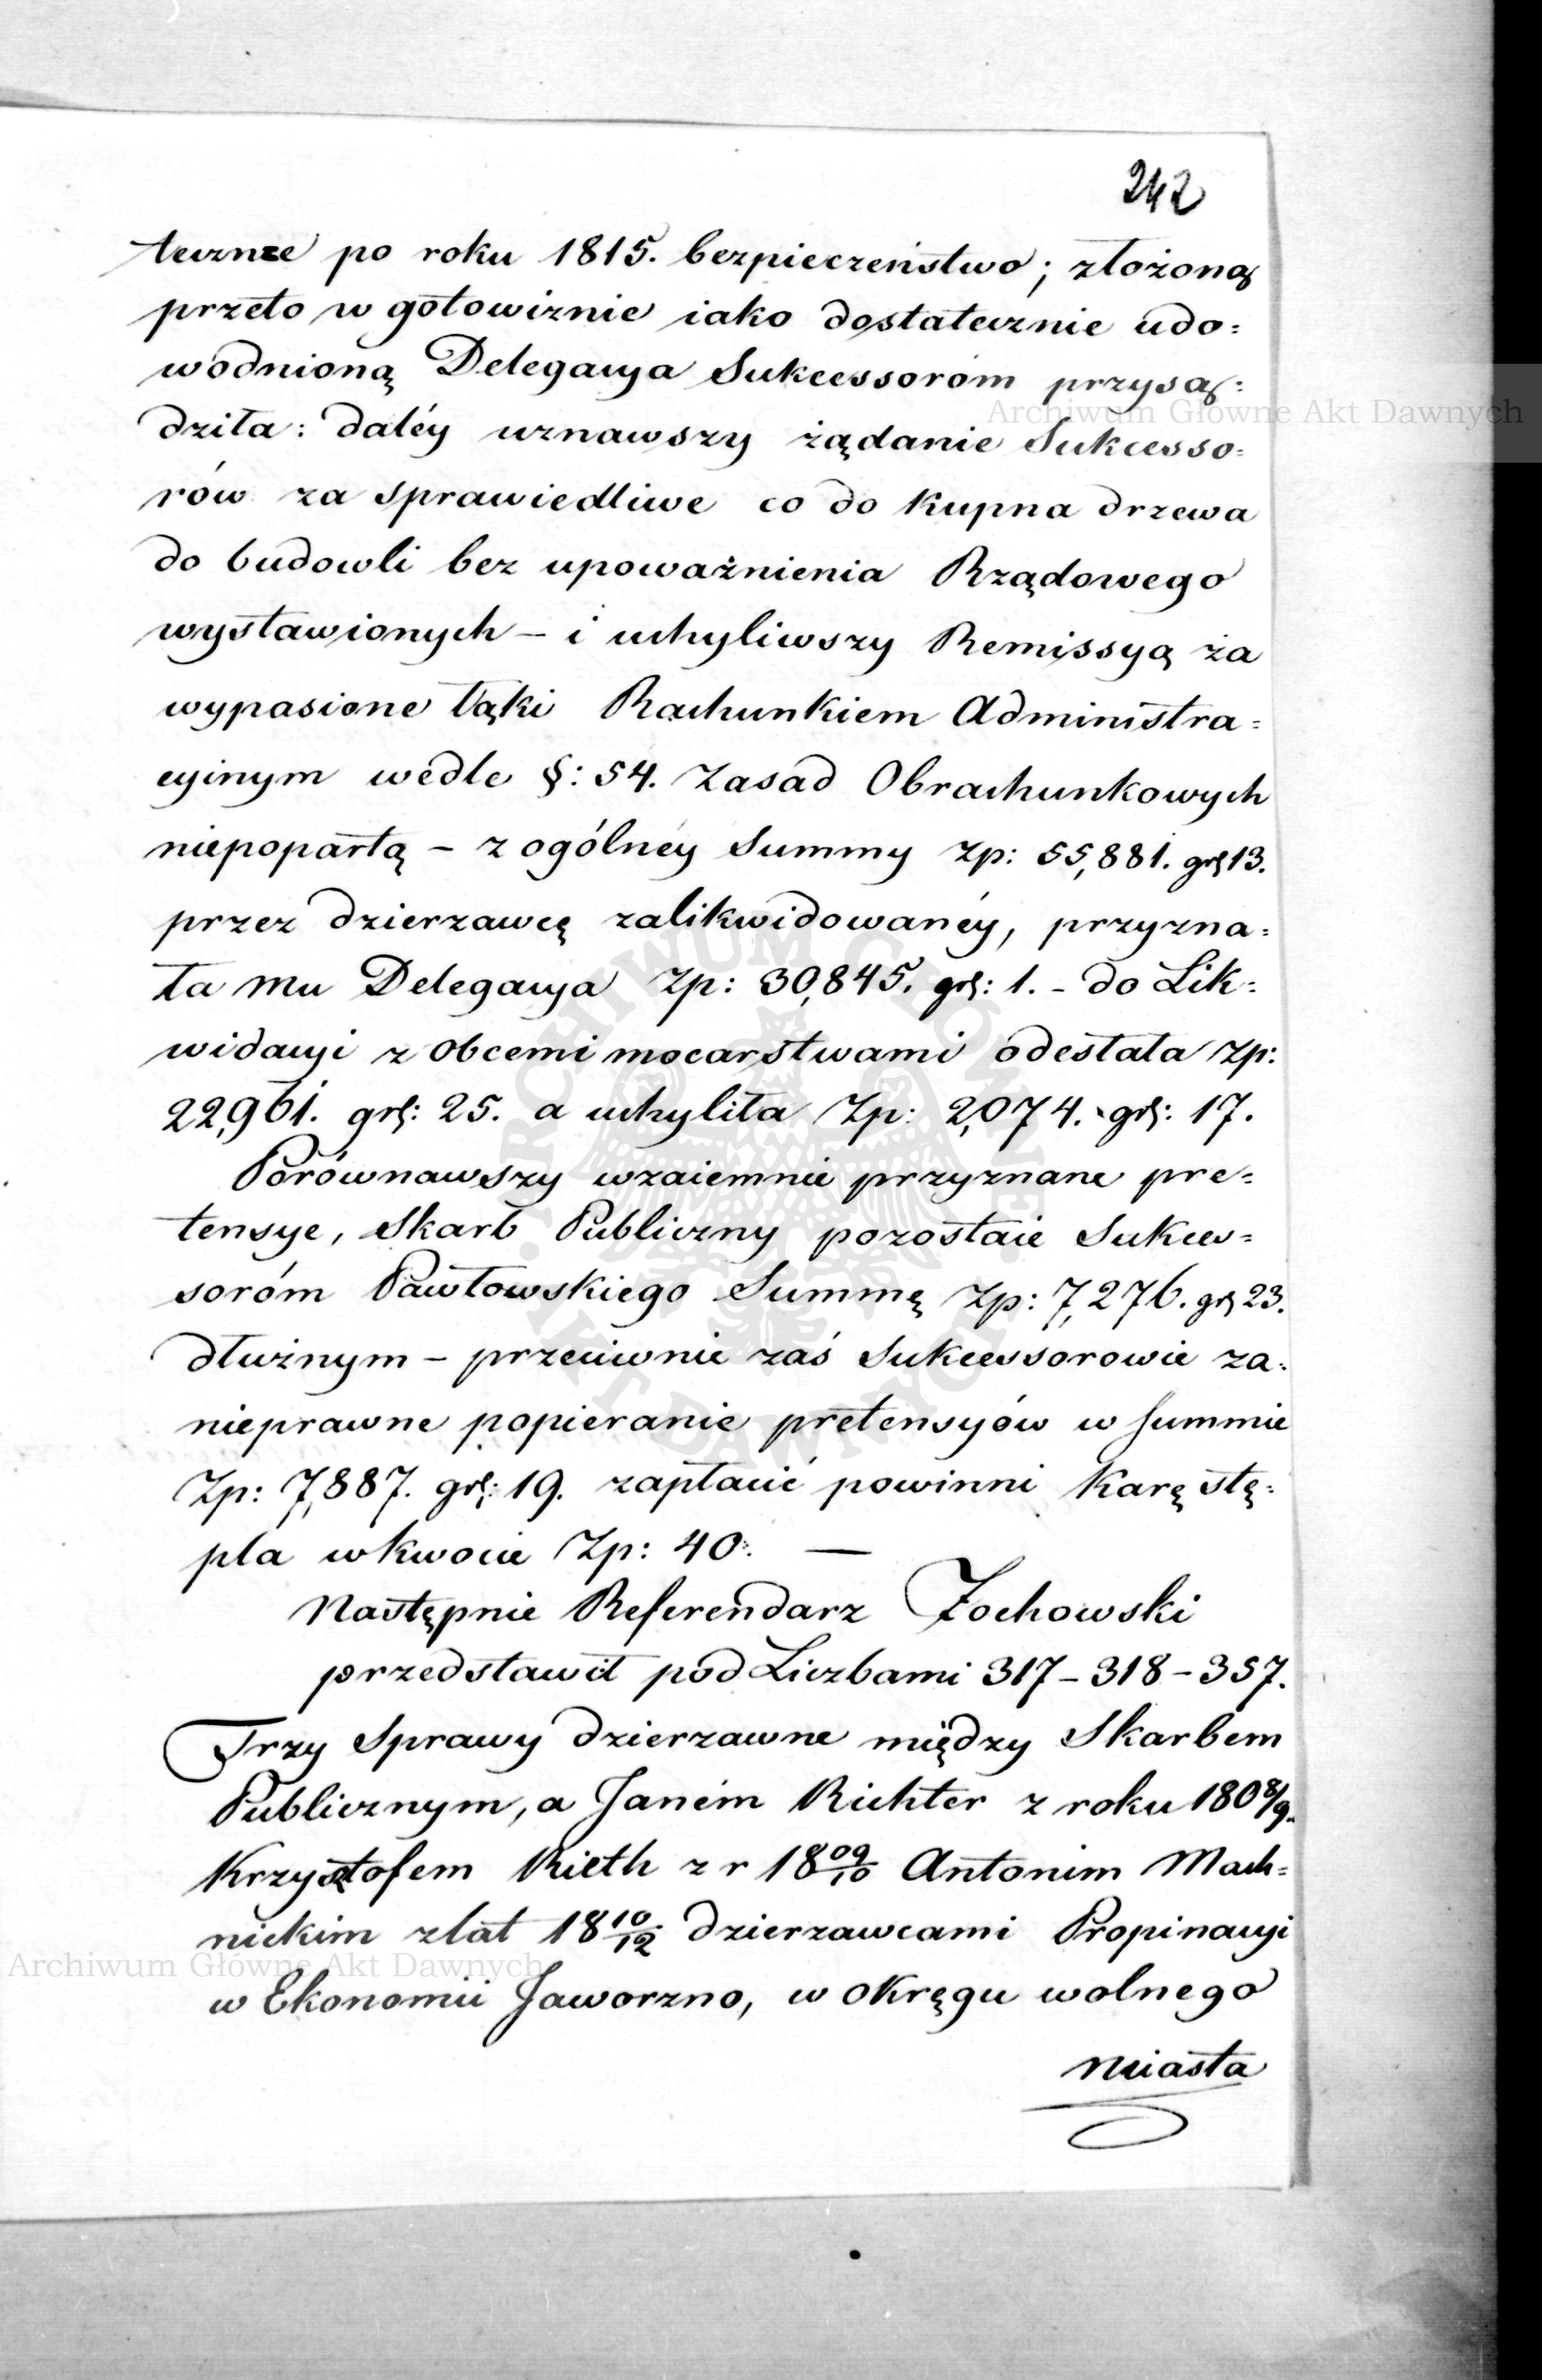 242
teczne po roku 1815. bezpieczeństwo; złożoną
przeto w gotowiznie iako dostatecznie udo=
wodnioną Delegacya Sukcessorom przysą=
dziła: daléy uznawszy żądanie Sukcesso=
rów za sprawiedliwe co do kupna drzewa
do budowli bez upoważnienia Rządowego
wystawionych – i uchyliwszy Remissyą za
wypasione łąki Rachunkiem Administra=
cyinym wedle §: 54. Zasad Obrachunkowych
niepopartą – z ogólnéy Summy Zp: 55,881. gr. 13.
przez dzierzawcę zalikwidowanéy, przyzna=
ła mu Delegacya Zp: 30,845. gr: 1. – do Lik=
widacyi z obcemi mocarstwami odesłała Zp:
22,961. gr: 25. a uchyliła Zp: 2,074. gr: 17.
Porównawszy wzaiemnie przyznane pre=
tensye, Skarb Publiczny pozostaie Sukces=
soróm Pawłowskiego Summę Zp: 7,276. gr 23.
dłużnym – przeciwnie zaś Sukcessorowie za
nieprawne popieranie pretensyów w summie
Zp: 7,887. gr: 19. zapłacić powinni Karę stę=
pla w kwocie Zp: 40. —
Następnie Referendarz Żochowski
przedstawił pod Liczbami 317 – 318 – 357.
Trzy Sprawy dzierzawne między Skarbem
Publicznym, a Janém Richter z roku 1808/9.
Krzysztofem Rieth z r 1809/10 Antonim Mach=
nickim z lat 1810/12 dzierzawcami Propinacyi
w Ekonomii Jaworzno, w okręgu wolnego
miasta
Archiwum Główne Akt Dawnych
Archiwum Główne Akt Dawnych
ARCHIWUM GŁÓWNE AKT DAWNYCH